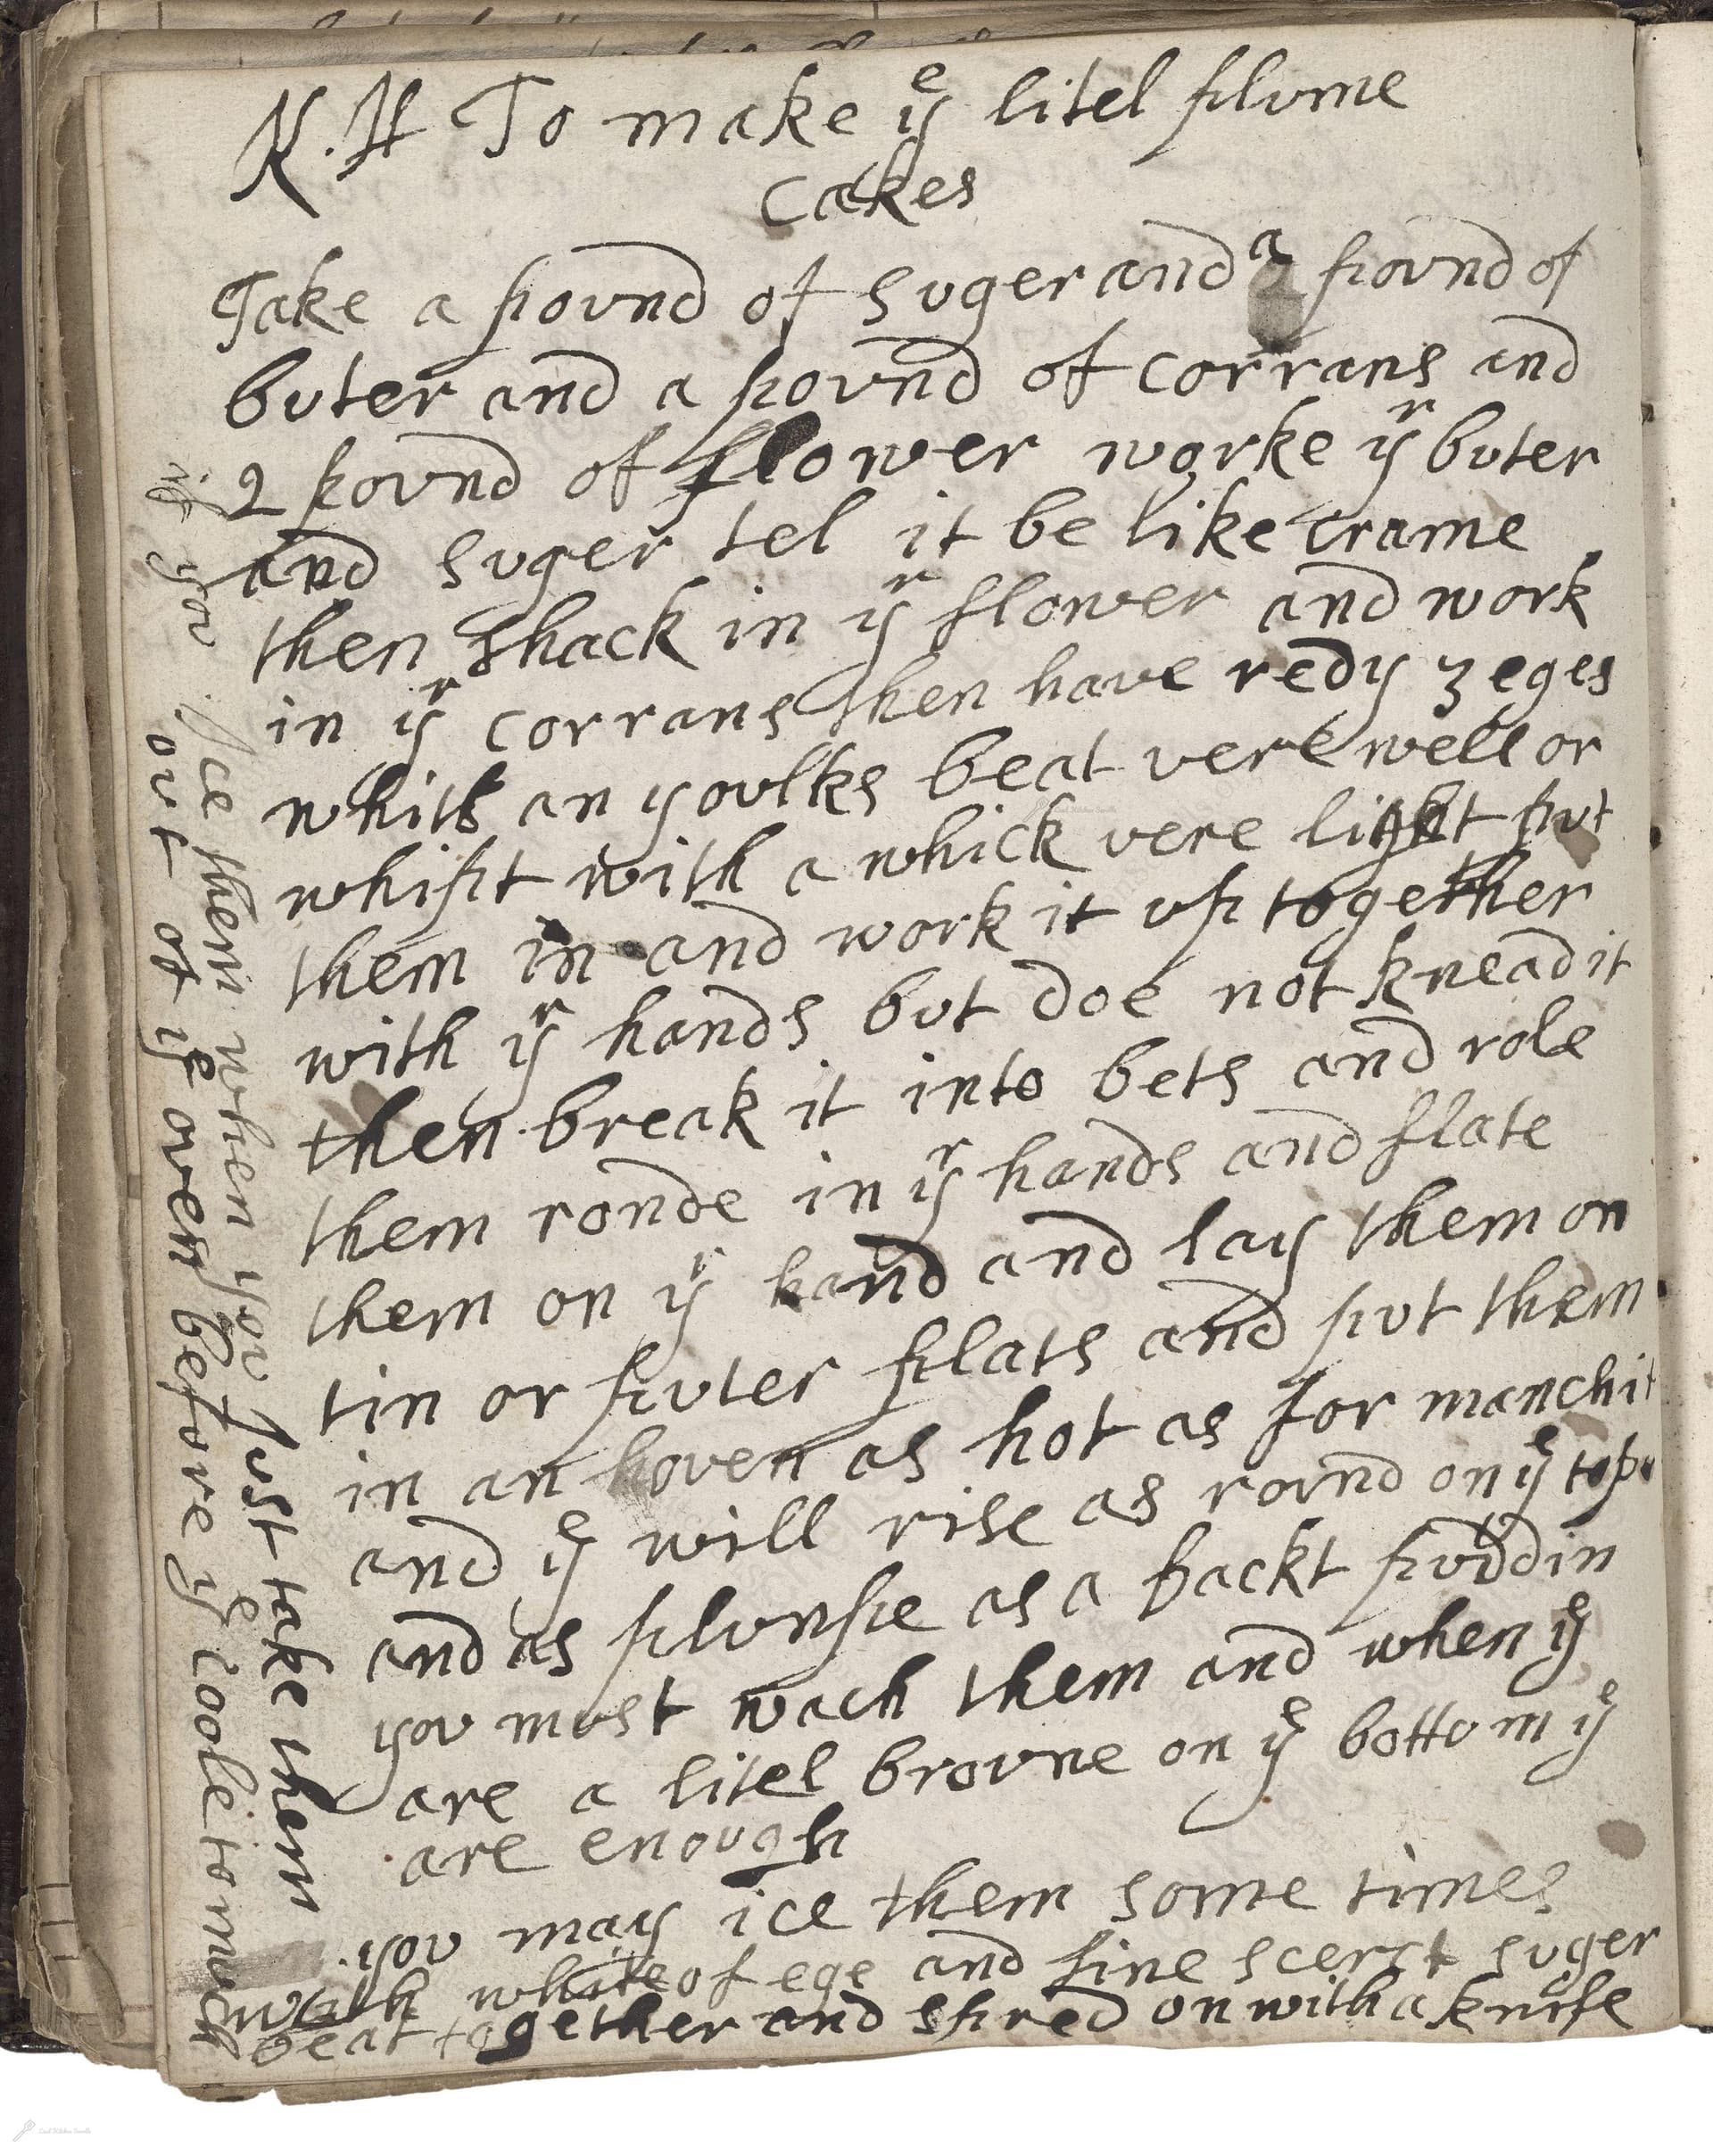 K.H To make yᵉ litel plume
Cakes
Take a pound of suger and a pound of
buter and a pound of corrans and
2 pound of flower worke yʳ buter
and suger tel it be like crame
then shack in yʳ flower and work
in yʳ corrans then have redy 3 eges
whits an youlks beat vere well or
whipt with a whick vere light put
them in and work it up together
with yʳ hands but doe not knead it
then break it into bets and role
them ronde in yʳ hands and flate
them on yʳ hand and lay them on
tin or puter plats and put them
in an hoven as hot as for manchit
and yᵉ will rise as round on yᵉ tope
and as plumpe as a backt puddin
you must wach them and when yᵉ
are a litel browne on yᵉ bottom yᵉ
are enough
you may ice them some times
with white of ege and fine scerst suger
beat together and spred on with a knife
if you Ice them when you just take them
out of yᵉ oven before yᵉ coole to much